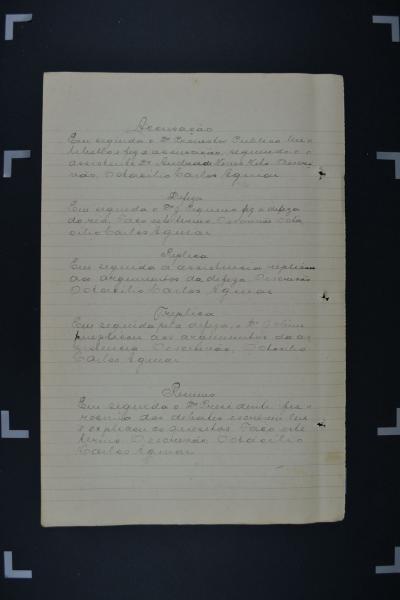 Accusação
Em seguida o Dr Promotor Publico leu o
libello e fez a accusação, seguindo-o o
assistente Dr Andrade Neves Netto. Escri-
vão, Octacilio Carlos Aguiar
Defeza
Em seguida o Dr fez a defeza
do réo. Faço este termo. Escrivão Octa
cilio Carlos Aguiar
Replica
Em seguida a assistencia replicou
aos argumentos da defeza. Escrivão
Octacilio Carlos Aguiar
Treplica
Em seguida pela defeza, o Dr
treplicou aos argumentos da as
sistencia. O escrivão, Octacilio
Carlos Aguiar
Resumo
Em seguida o Dr Presidente fez o
resumo dos debates escreveu leu
e explicou os quesitos. Faço este
termo. O escrivão Octacilio
Carlos Aguiar